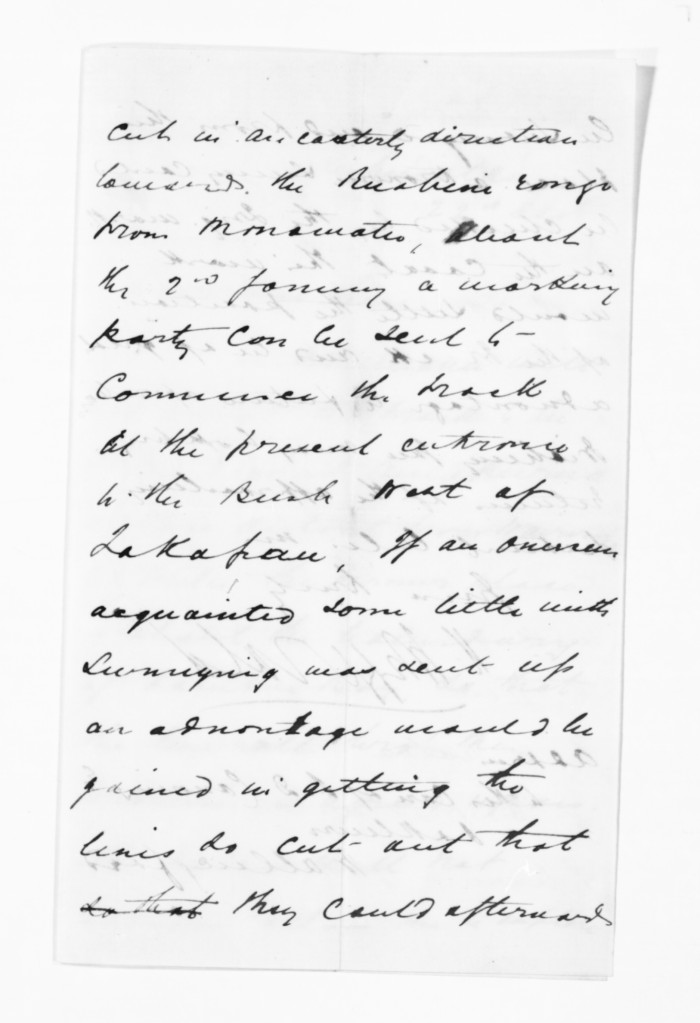 cut in an easterly direction
towards the Ruahine range
from Manawatu, About
the 2nd January a working
party can be sent to
Commence the track
at the present entrance
to the Bush West of
Takapau, If an overseer
acquainted some little with
surveying was sent up
an advantage would be
gained in getting the
lines so cut out that
so that they could afterwards